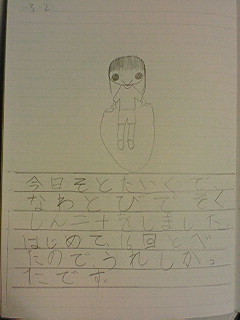 今日そとたいくで、
なわとびで そく
しん二十をしました。
はじめて、16回とべ
たのでうれしかっ
たです。